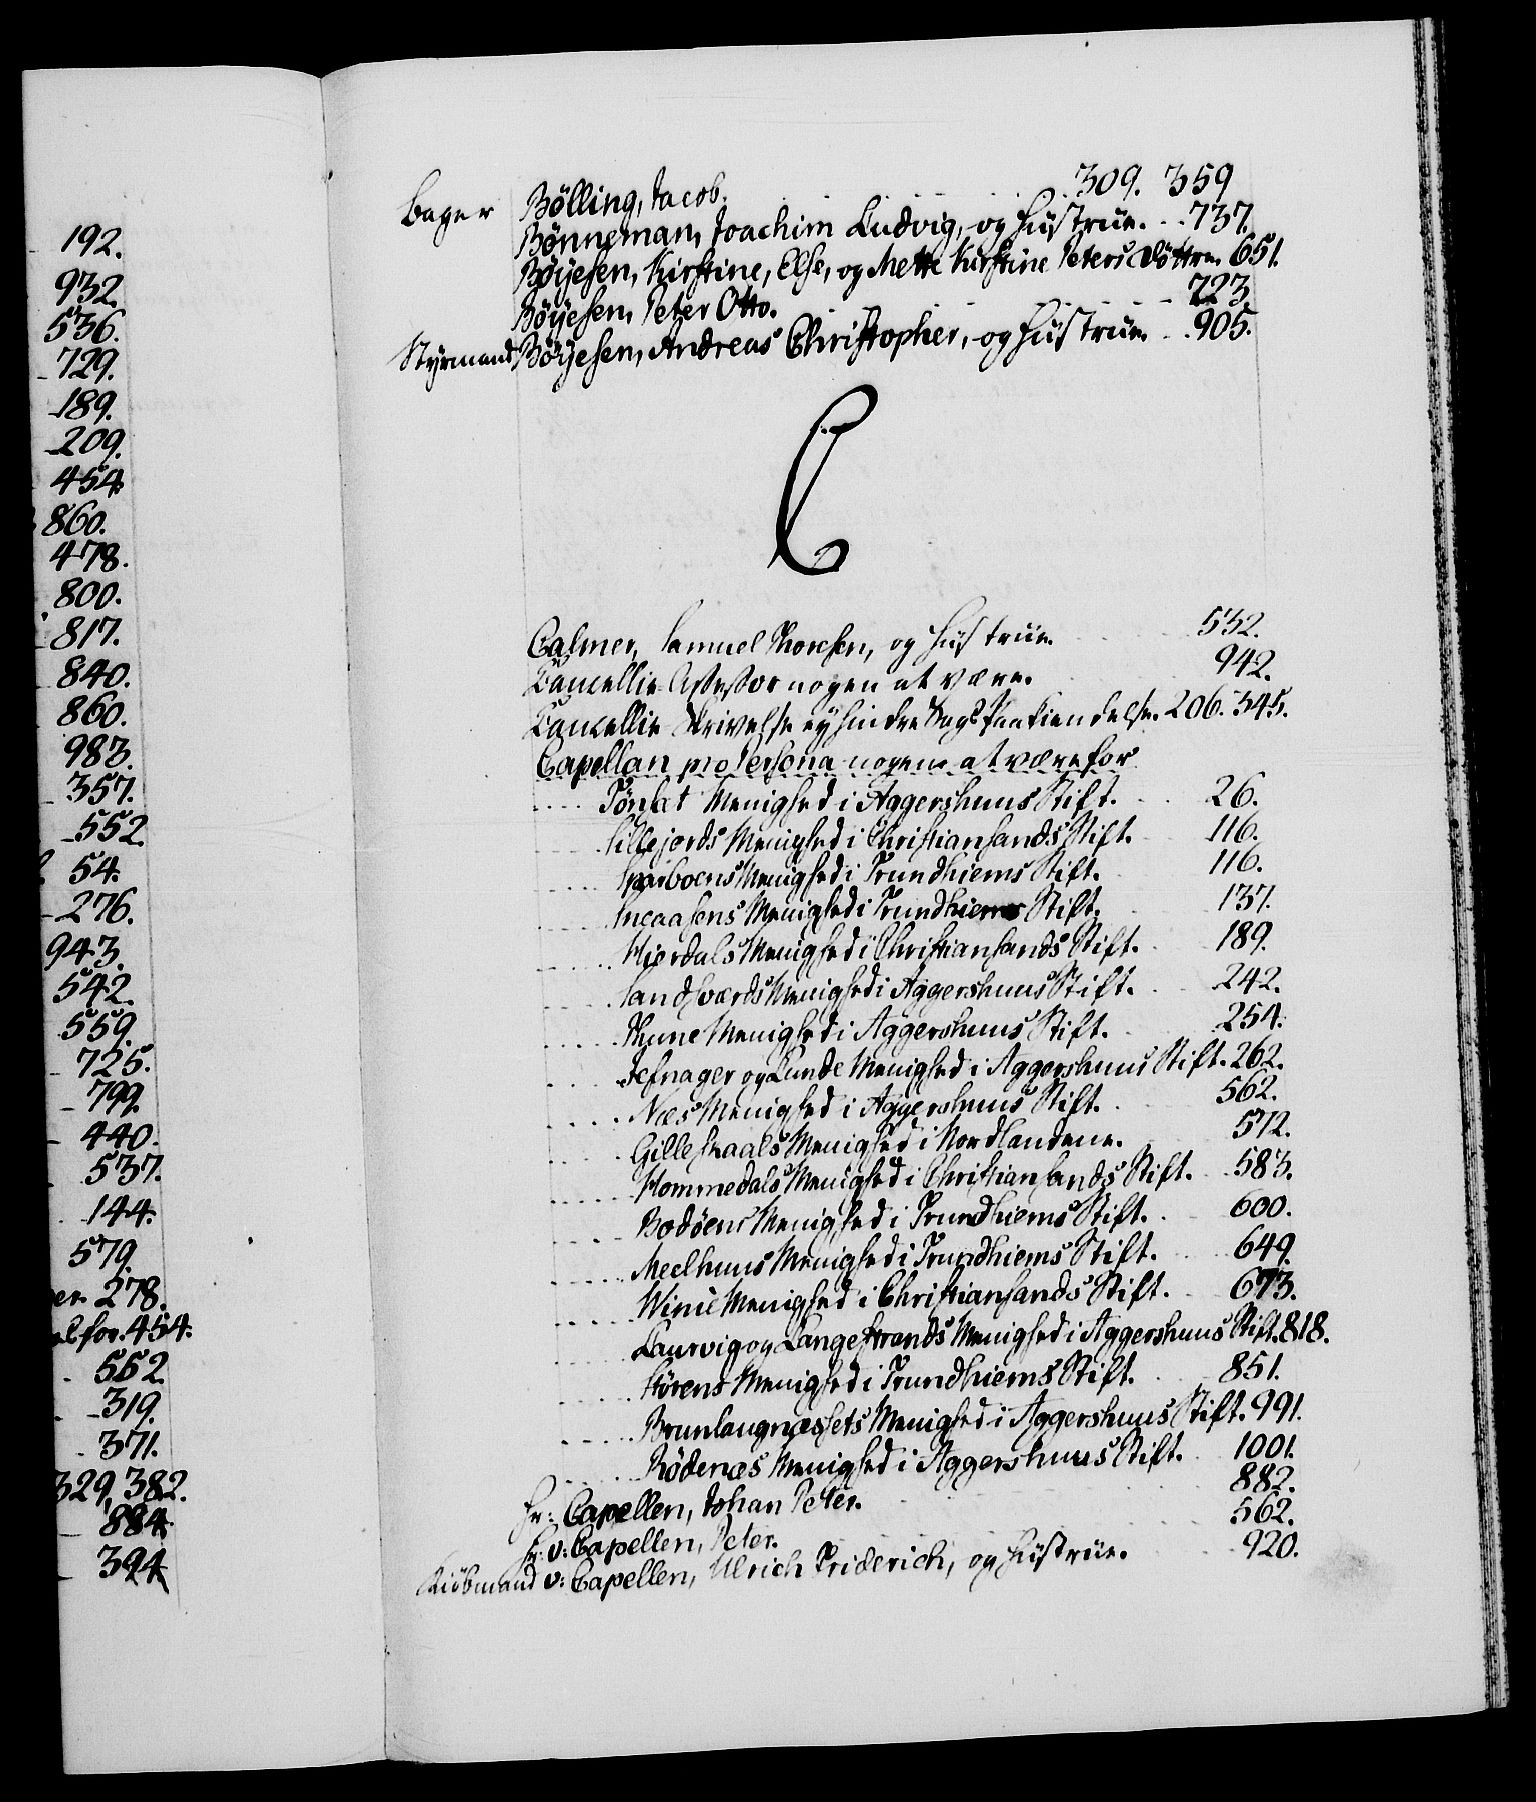 192.
932.
536.
729.
189.
209.
454.
860.
478.
800.
817.
840.
860.
983.
357.
552.
54.
276.
943.
542.
559.
725.
799.
440.
537.
144.
579.
er 278.
el for. 454.
552.
319.
371.
329, 382.
884.
394.
Bager Bölling, Jacob. 309. 359
Bönneman, Joachim Ludvig, og Hustrue. 737.
Böÿesen, Kirstine, Else, og Mette Kirstine Peters Döttre. 651.
Böÿesen, Peter Otto. 723.
Styrmand Böÿesen, Andreas Christopher, og Hustrue. 905.
C
Calmer, Samuel Thoresen, og Hustrue. 532.
Cancellie-Assessor nogen at være. 942.
Cancellie Skrivelse eÿ hindre Sags Paakiendelse. 206. 545.
Capellan pro Persona nogen at være for
Tönset Menighed i Aggershuus Stift. 26.
Sillejords Menighed i Christiansands Stift. 116.
Sparboens Menighed i Trundhiems Stift. 116.
Sneaasens Menighed i Trundhiems Stift. 137.
Hierdals Menighed i Christiansands Stift. 189.
Sandsværds Menighed i Aggershuus Stift. 242.
Thune Menighed i Aggershuus Stift. 254.
Jefnager og Lunde Menighed i Aggershuus Stift. 262.
Næs Menighed i Aggershuus Stift. 562.
Gilleskaals Menighed i Nordlandene. 572.
Hommedals Menighed i Christiansands Stift. 583.
Bodöens Menighed i Trundhiems Stift. 600.
Meelhuus Menighed i Trundhiems Stift. 649.
Winie Menighed i Christiansands Stift. 673.
Laurvig og Langestrands Menighed i Aggershuus Stift. 818.
Störens Menighed i Trundhiems Stift. 851.
Brunlaugnæssets Menighed i Aggershuus Stift. 991.
Rödenæs Menighed i Aggershuus Stift. 1001.
Hr: Capellen, Johan Peter. 882.
Hr: v: Capellen, Peter. 562.
Kiöbmand v: Capellen, Ulrich Friderich, og Hustrue. 920.